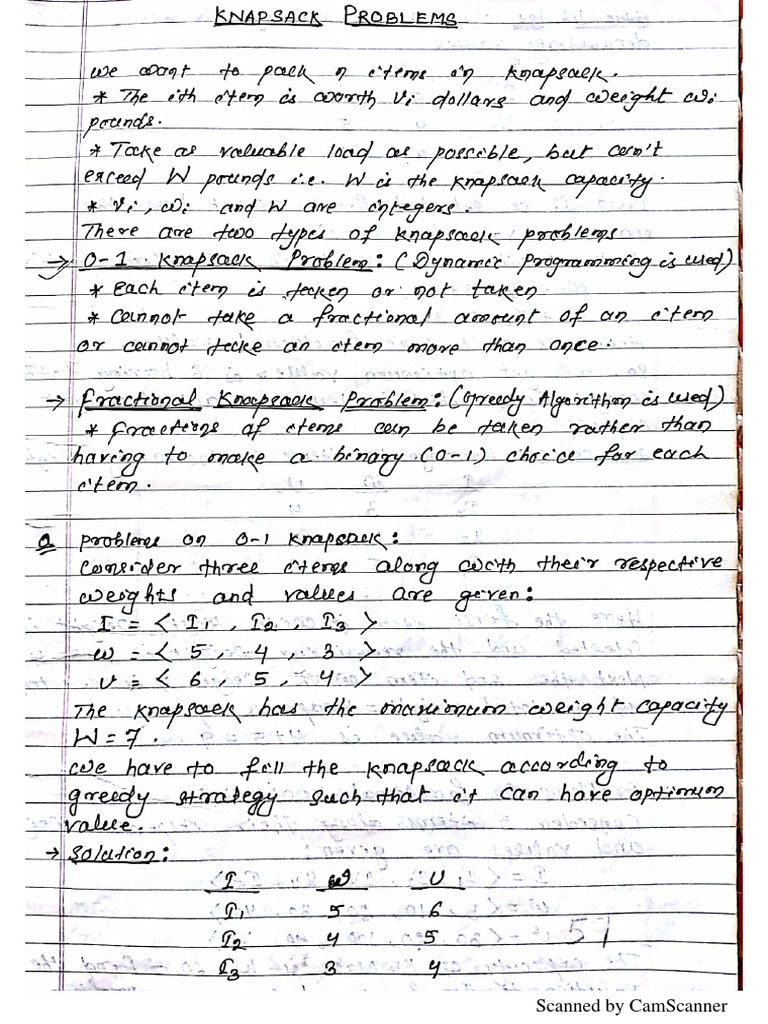 KNAPSACK PROBLEMS
we want to pack n items in knapsack.
* The ith item is worth vi dollars and weight wi
pounds.
* Take as valuable load as possible, but can't
exceed W pounds i.e. W is the knapsack capacity.
* vi, wi and W are integers.
There are two types of knapsack problems
→ 0-1 Knapsack Problem: (Dynamic Programming is used)
* Each item is taken or not taken
* cannot take a fractional amount of an item
or cannot take an item more than once.
→ Fractional Knapsack Problem: (Greedy Algorithm is used)
* Fractions of items can be taken rather than
having to make a binary (0-1) choice for each
item.
Q Problems on 0-1 Knapsack:
Consider three items along with their respective
weights and values are given:
I = < I1, I2, I3 >
w = < 5, 4, 3 >
v = < 6, 5, 4 >
The knapsack has the maximum weight capacity
W = 7.
we have to fill the knapsack according to
greedy strategy such that it can have optimum
value.
→ Solution:
I w v
I1 5 6
I2 4 5
51
I3 3 4
Scanned by CamScanner